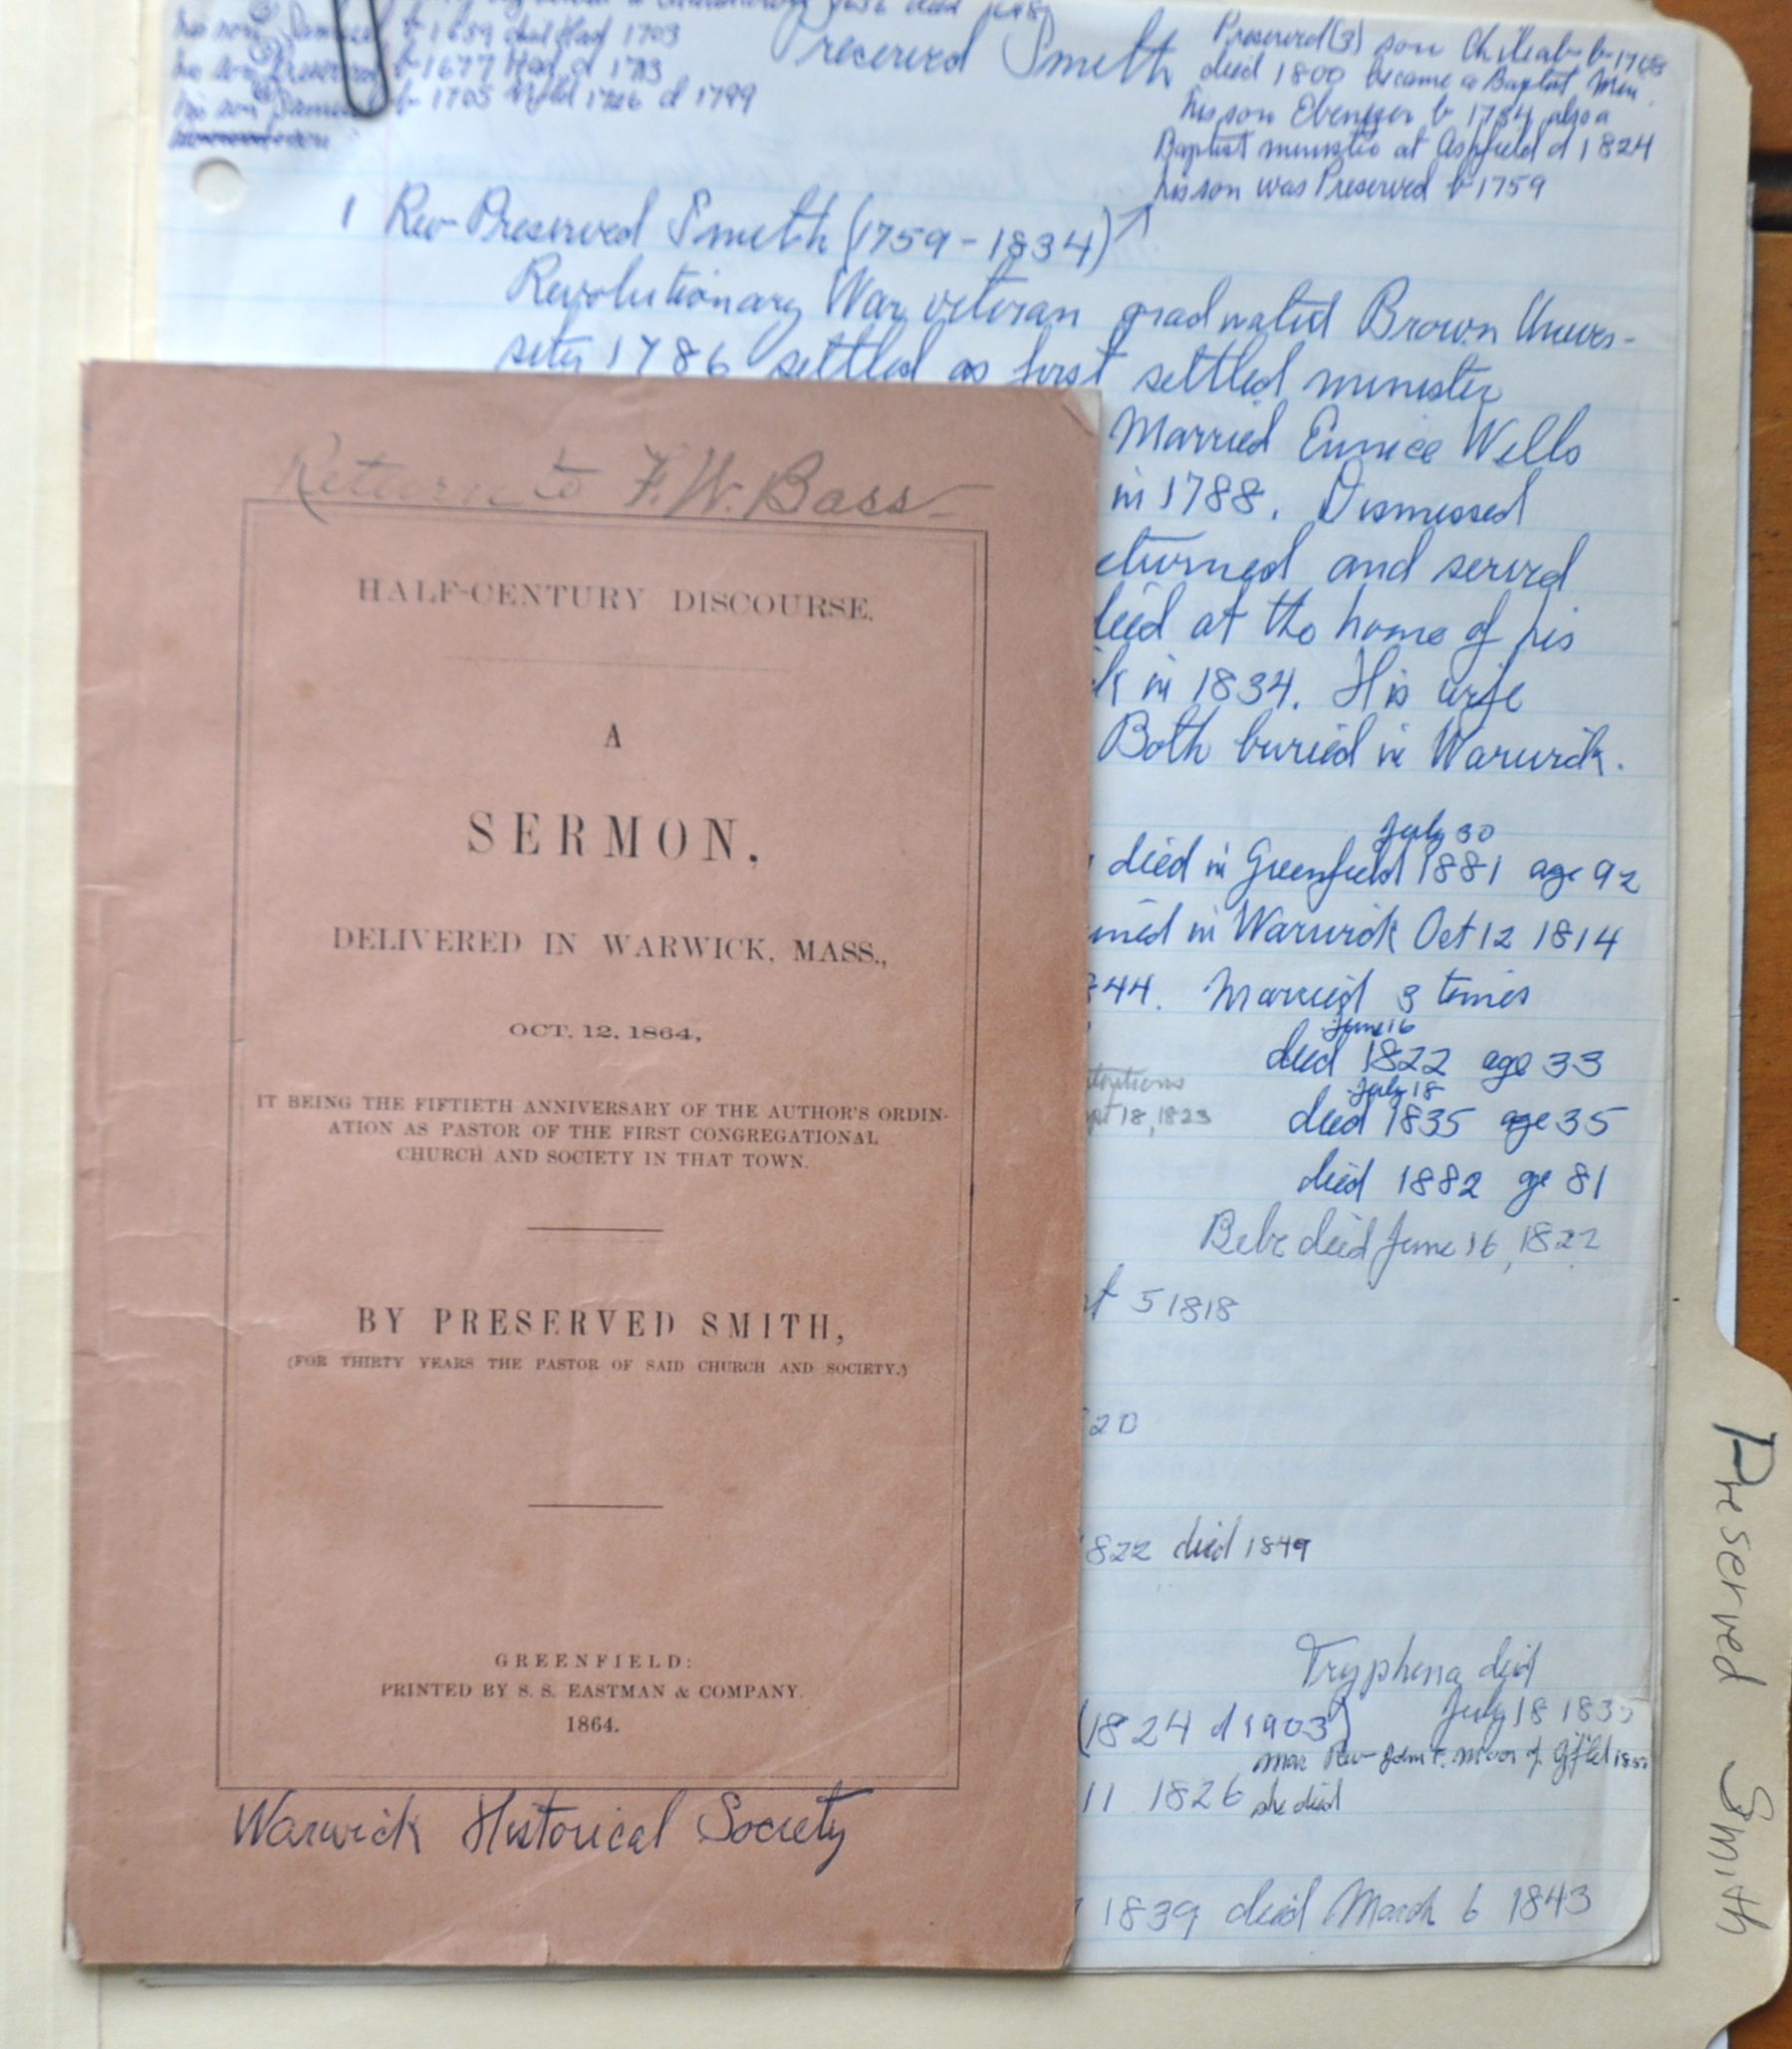 Preserved Smith
his son Samuel b 1639 Had 1703
his son Preserved b 1677 Had d 1713
his son Samuel b 1705 d 1799
Preserved (3) son Chileab b 1708
died 1800 became a Baptist Min.
his son Ebenezer b 1734 also a
Baptist minister at Ashfield d 1824
his son was Preserved b 1759
1 Rev Preserved Smith (1759-1834)
Revolutionary War veteran graduated Brown Univer-
sity 1786 settled as first settled minister
Married Eunice Wells
in 1788. Dismissed
eturned and served
died at the home of his
k in 1834. His wife
Both buried in Warwick.
July 30
died in Greenfield 1881 age 92
ined in Warwick Oct 12 1814
44. Married 3 times
June 16
died 1822 age 33
July 18
pt 18, 1823
died 1835 age 35
died 1882 age 81
Bebe died June 16, 1822
t 5 1818
20
822 died 1849
Tryphena died
July 18 1835
(1824 d 1903)
mar Rev John F. Moor of Gf'ld
11 1826 she died
1839 died March 6 1843
Return to F. W. Bass
HALF-CENTURY DISCOURSE.
A
SERMON,
DELIVERED IN WARWICK, MASS.,
OCT. 12, 1864,
IT BEING THE FIFTIETH ANNIVERSARY OF THE AUTHOR'S ORDIN-
ATION AS PASTOR OF THE FIRST CONGREGATIONAL
CHURCH AND SOCIETY IN THAT TOWN.
BY PRESERVED SMITH,
(FOR THIRTY YEARS THE PASTOR OF SAID CHURCH AND SOCIETY.)
GREENFIELD:
PRINTED BY S. S. EASTMAN & COMPANY.
1864.
Warwick Historical Society
Preserved Smith